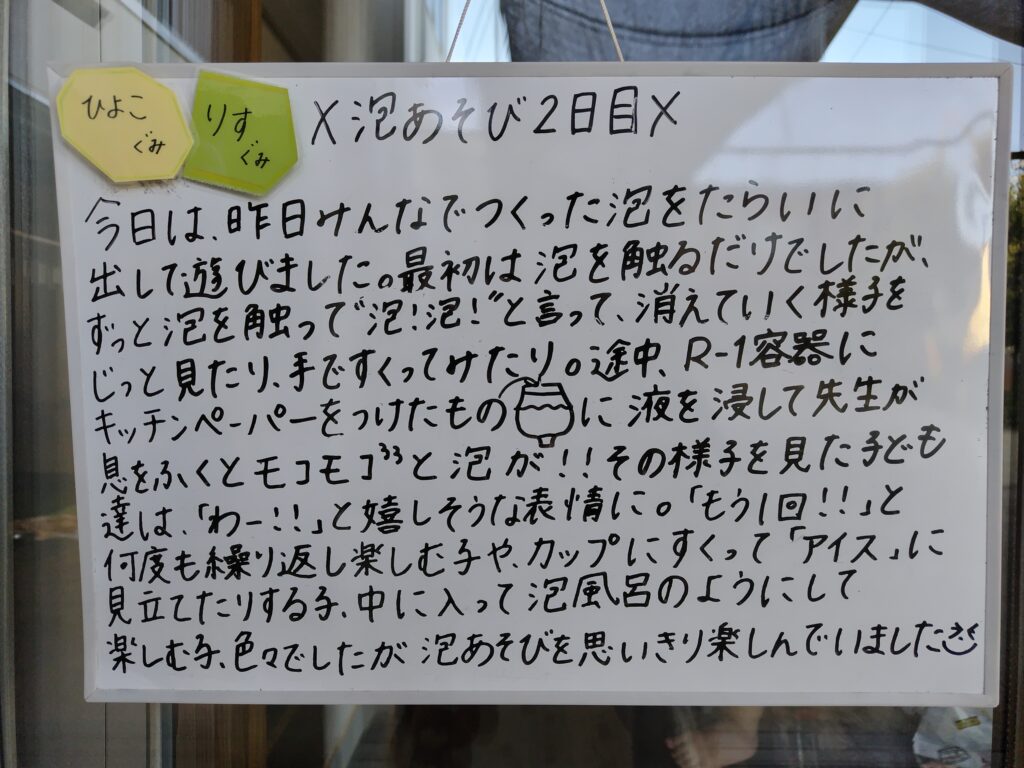 ひよこ
ぐみ
りす
ぐみ
X 泡あそび2日目 X
今日は、昨日みんなでつくった泡をたらいに
出して遊びました。最初は泡を触るだけでしたが、
ずっと泡を触って"泡!泡!"と言って、消えていく様子を
じっと見たり、手ですくってみたり。途中、R-1容器に
キッチンペーパーをつけたものに液を浸して先生が
息をふくとモコモコと泡が!!その様子を見た子ども
達は、「わー!!」と嬉しそうな表情に。「もう1回!!」と
何度も繰り返し楽しむ子や、カップにすくって「アイス」に
見立てたりする子、中に入って泡風呂のようにして
楽しむ子、色々でしたが泡あそびを思いきり楽しんでいました